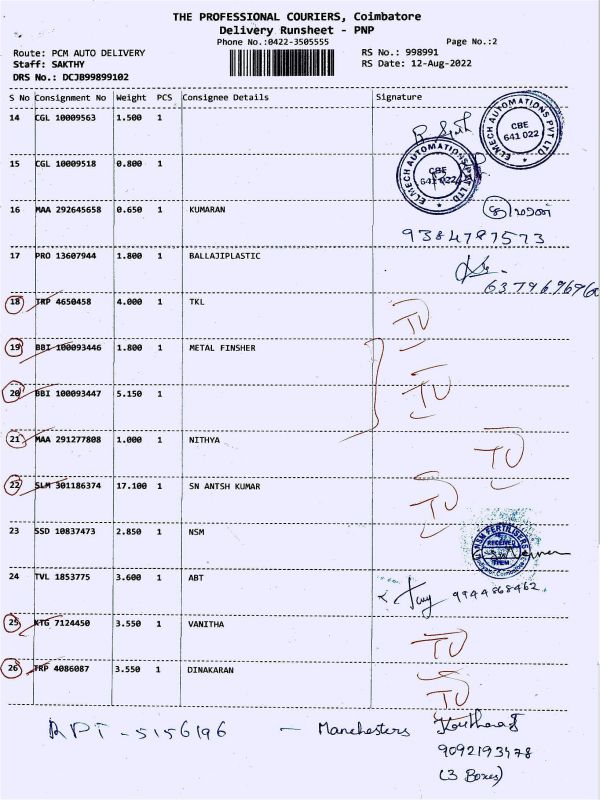 THE PROFESSIONAL COURIERS, Coimbatore
Delivery Runsheet - PNP
Phone No.:0422-3505555 Page No.:2
Route: PCM AUTO DELIVERY RS No.: 998991
Staff: SAKTHY RS Date: 12-Aug-2022
DRS No.: DCJB99899102
S No Consignment No Weight PCS Consignee Details Signature
14 CGL 10009563 1.500 1
ELMECH AUTOMATIONS PVT LTD CBE 641 022
15 CGL 10009518 0.800 1
ELMECH AUTOMATIONS PVT LTD CBE 641 022
16 MAA 292645658 0.650 1 KUMARAN
9384787573
17 PRO 13607944 1.800 1 BALLAJIPLASTIC
6379696960
18 TRP 4650458 4.000 1 TKL TU
19 BBI 100093446 1.800 1 METAL FINSHER
20 BBI 100093447 5.150 1 TU
21 MAA 291277808 1.000 1 NITHYA TU
22 SLM 301186374 17.100 1 SN ANTSH KUMAR TU
23 SSD 10837473 2.850 1 NSM
NSM FERTILISERS RECEIVED
24 TVL 1853775 3.600 1 ABT
9944868462
25 KTG 7124450 3.550 1 VANITHA TU
26 TRP 4086087 3.550 1 DINAKARAN TU
RPT - 5156196 - Manchesters
9092193478
(3 Boxes)